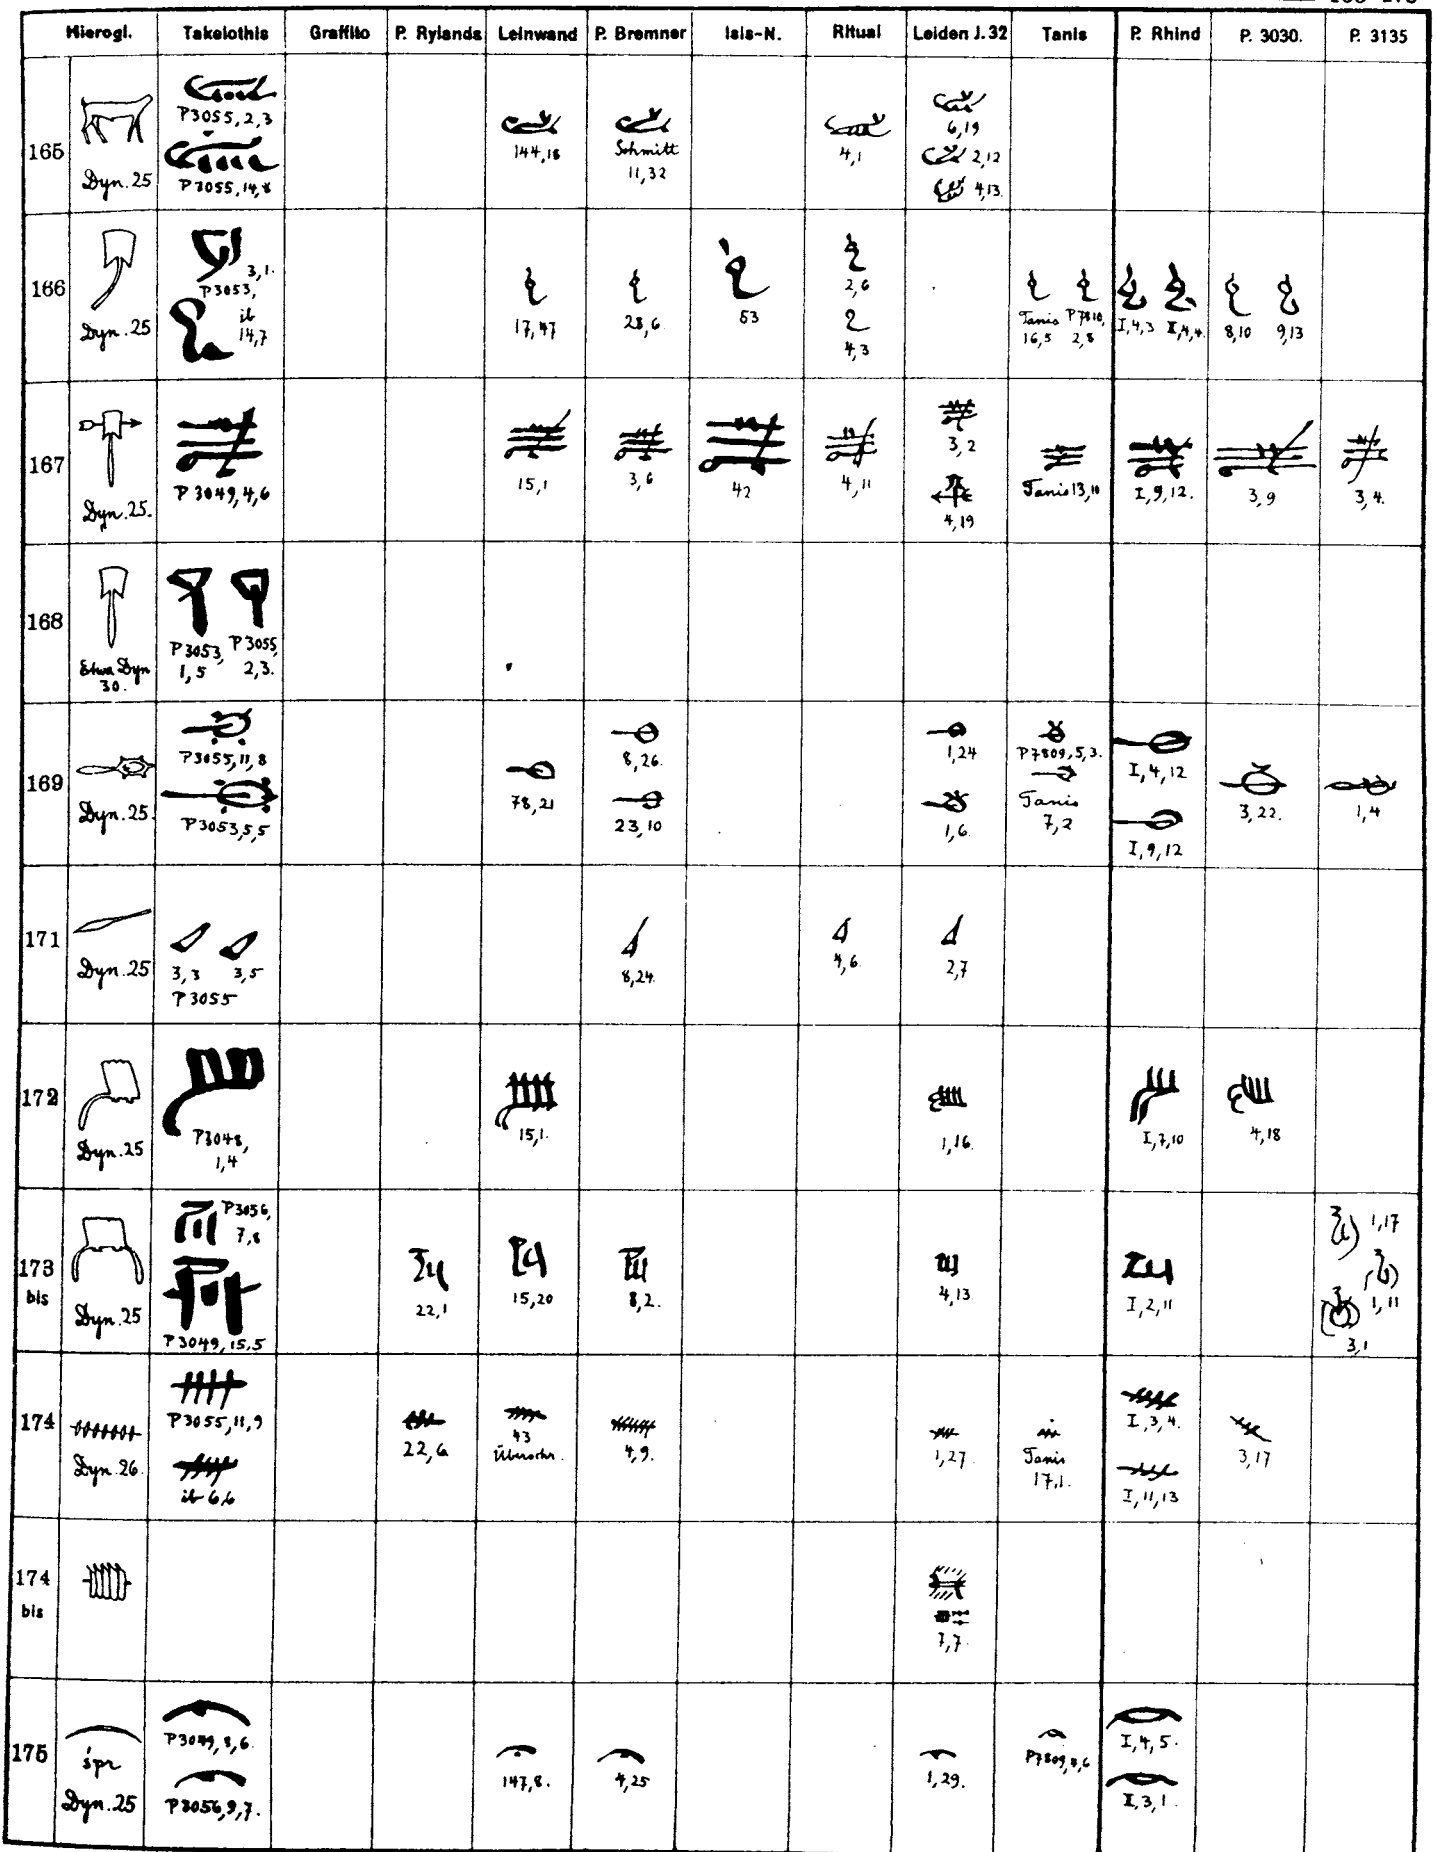 Hierogl. Takelothis Graffito P. Rylands Leinwand P. Bremner Isis-N. Ritual Leiden J.32 Tanis P. Rhind P. 3030. P. 3135
165
Dyn. 25
P3055,2,3
P3055,14,8
144,18
Schmitt
11,32
4,1
6,19
2,12
4,13.
166
Dyn. 25
3,1.
P3053,
ib
14,7
17,47
28,6.
53
2,6
4,3
Tanis
16,5
P7810,
2,8
I,4,3
II,4,4.
8,10
9,13
167
Dyn. 25.
P3049,4,6
15,1
3,6
42
4,11
3,2
4,19
Tanis 13,11
I,9,12.
3,9
3,4.
168
Etwa Dyn
30.
P3053,
1,5
P3055,
2,3.
169
Dyn. 25.
P3055,11,8
P3053,5,5
78,21
8,26.
23,10
1,24
1,6.
P7809,5,3.
Tanis
7,2
I,4,12
I,9,12
3,22.
1,4
171
Dyn. 25
3,3 3,5
P3055
8,24.
4,6.
2,7
172
Dyn. 25
P3048,
1,4
15,1.
1,16.
I,7,10
4,18
173
bis
Dyn. 25
P3056,
7,8
P3049,15,5
22,1
15,20
8,2.
4,13.
I,2,11
1,17
1,11
3,1
174
Dyn. 26.
P3055,11,9
ib 6,6
22,6
43
Überschr.
4,9.
1,27.
Tanis
17,1.
I,3,4.
I,11,13
3,17
174
bis
7,7.
175
śpr
Dyn. 25
P3049,8,6.
P3056,9,7.
147,8.
4,25
1,29.
P7809,4,6
I,4,5.
II,3,1.